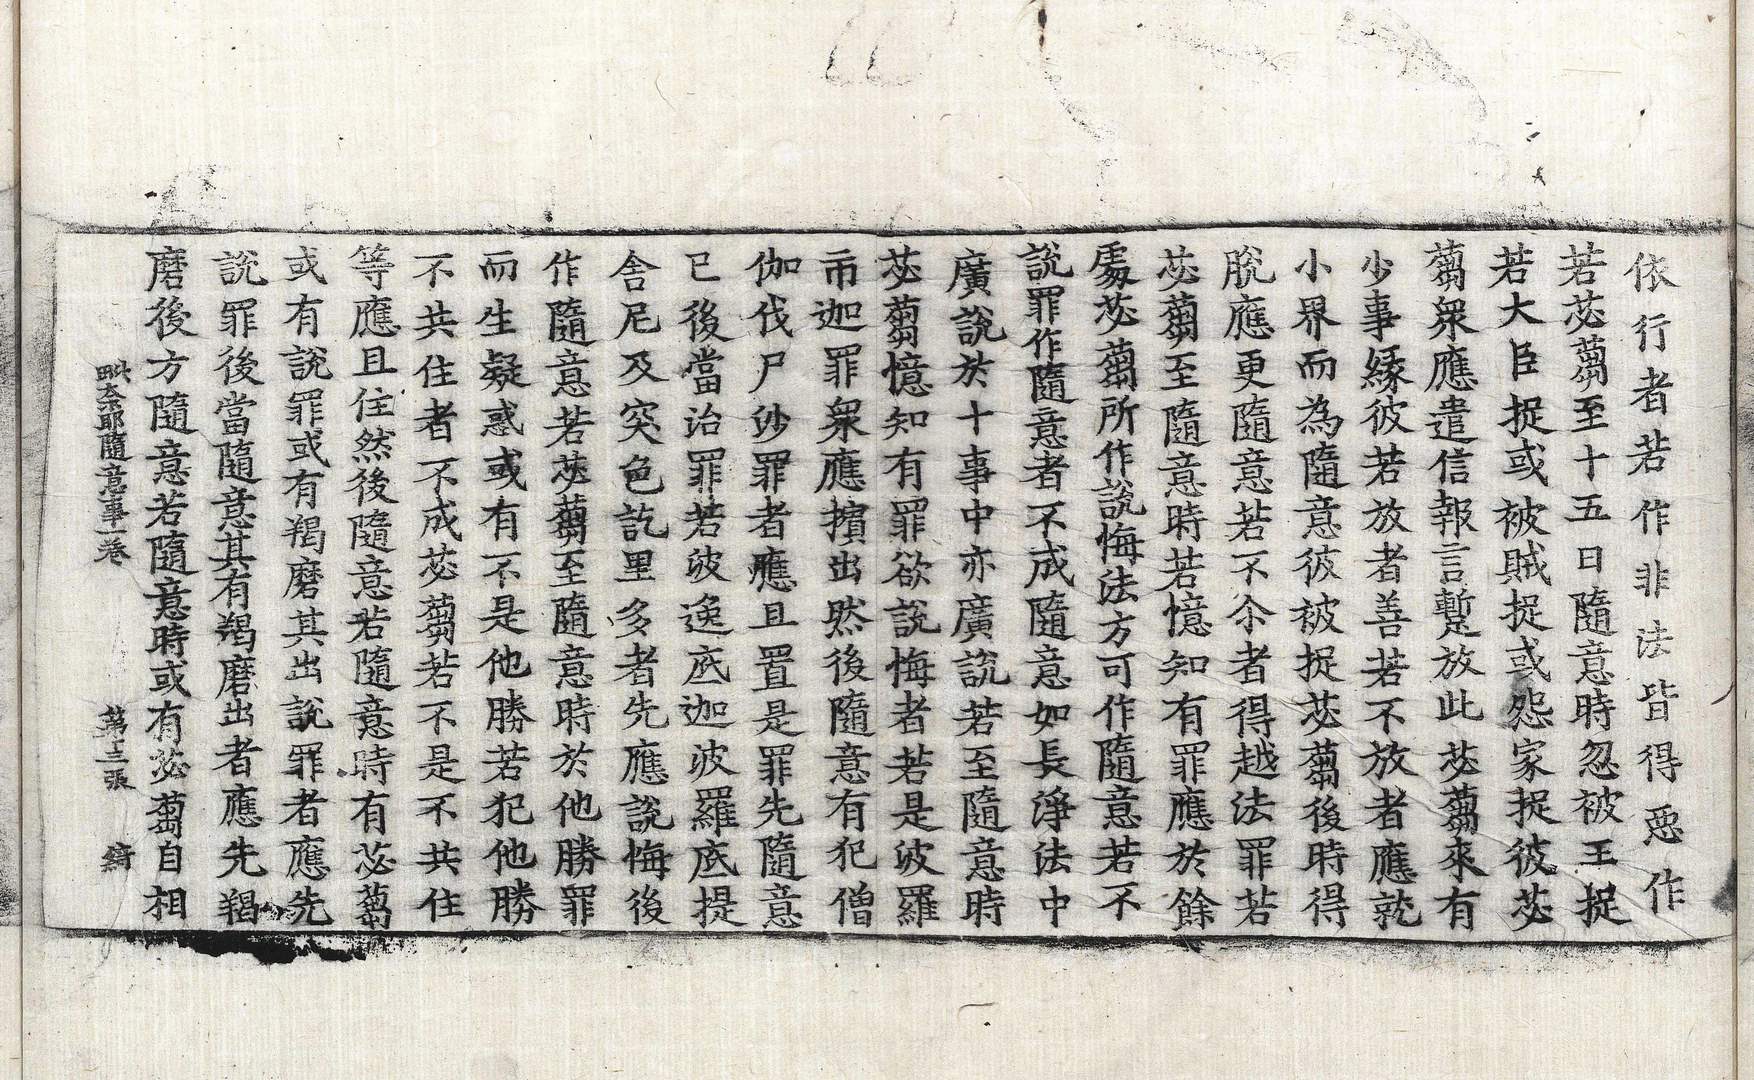 依行者若作非法皆得惡作
若苾蒭至十五日隨意時忽被王捉
若大臣捉或被賊捉或怨家捉彼苾
蒭衆應遣信報言蹔放此苾蒭來有
少事縁彼若放者善若不放者應就
小界而為隨意彼被捉苾蒭後時得
脫應更隨意若不尒者得越法罪若
苾蒭至隨意時若憶知有罪應於餘
處苾蒭所作說悔法方可作隨意若不
說罪作隨意者不成隨意如長淨法中
廣說於十事中亦廣說若至隨意時
苾蒭憶知有罪欲說悔者若是波羅
市迦罪衆應擯出然後隨意有犯僧
伽伐尸沙罪者應且置是罪先隨意
已後當治罪若波逸底迦波羅底提
舍尼及突色訖里多者先應說悔後
作隨意若苾蒭至隨意時於他勝罪
而生疑惑或有不是他勝若犯他勝
不共住者不成苾蒭若不是不共住
等應且住然後隨意若隨意時有苾蒭
或有說罪或有羯磨其出說罪者應先
說罪後當隨意其有羯磨出者應先羯
磨後方隨意若隨意時或有苾蒭自相
毗奈耶隨意事一卷　第十三張